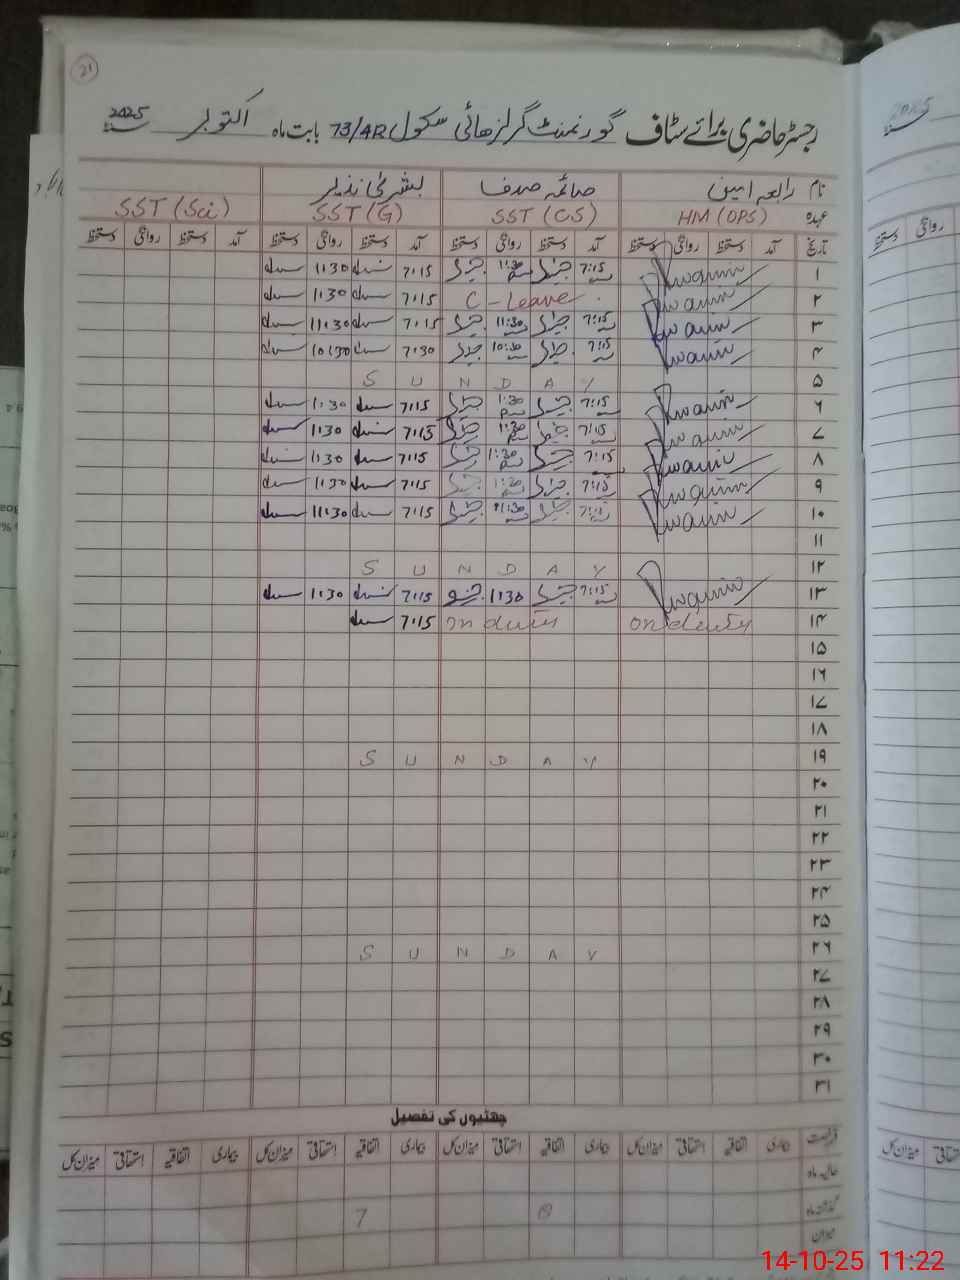 21
رجسٹر حاضری برائے سٹاف گورنمنٹ گرلز ھائی سکول 73/4R بابت ماہ اکتوبر 2025
نام رابعہ امین صائمہ صدف بشریٰ نذیر
عہدہ HM (OPS) SST (CS) SST (G) SST (Sci)
تاریخ آمد دستخط روانگی دستخط آمد دستخط روانگی دستخط آمد دستخط روانگی دستخط آمد دستخط روانگی دستخط
۱ 7:15 1:30 7:15 1:30
۲ C-Leave 7:15 1:30
۳ 7:15 11:30 7:15 11:30
۴ 7:15 10:30 7:30 10:30
۵ S U N D A Y
۶ 7:15 1:30 7:15 1:30
۷ 7:15 1:30 7:15 1:30
۸ 7:15 1:30 7:15 1:30
۹ 7:15 1:30 7:15 1:30
۱۰ 7:15 11:30 7:15 11:30
۱۱
۱۲ S U N D A Y
۱۳ 7:15 1:30 7:15 1:30
۱۴ on duty on duty 7:15
۱۵
۱۶
۱۷
۱۸
۱۹ S U N D A Y
۲۰
۲۱
۲۲
۲۳
۲۴
۲۵
۲۶ S U N D A Y
۲۷
۲۸
۲۹
۳۰
۳۱
چھٹیوں کی تفصیل
رخصت بیماری اتفاقیہ استحقاقی میزان کل بیماری اتفاقیہ استحقاقی میزان کل بیماری اتفاقیہ استحقاقی میزان کل بیماری اتفاقیہ استحقاقی میزان کل
حالیہ ماہ
گذشتہ ماہ 7
میزان
14-10-25 11:22